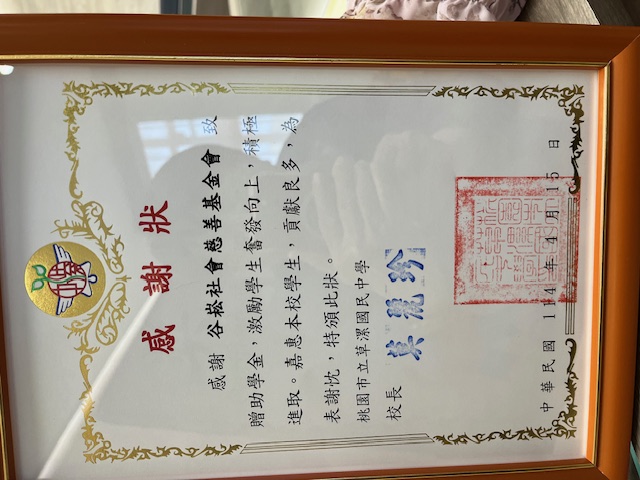 感謝狀
感謝 谷崧社會慈善基金會 致
贈助學金，激勵學生奮發向上，積極
進取。嘉惠本校學生，貢獻良多，為
表謝忱，特頒此狀。
桃園市立草漯國民中學
校長 莫麗珍
中華民國 114 年 4 月 15 日